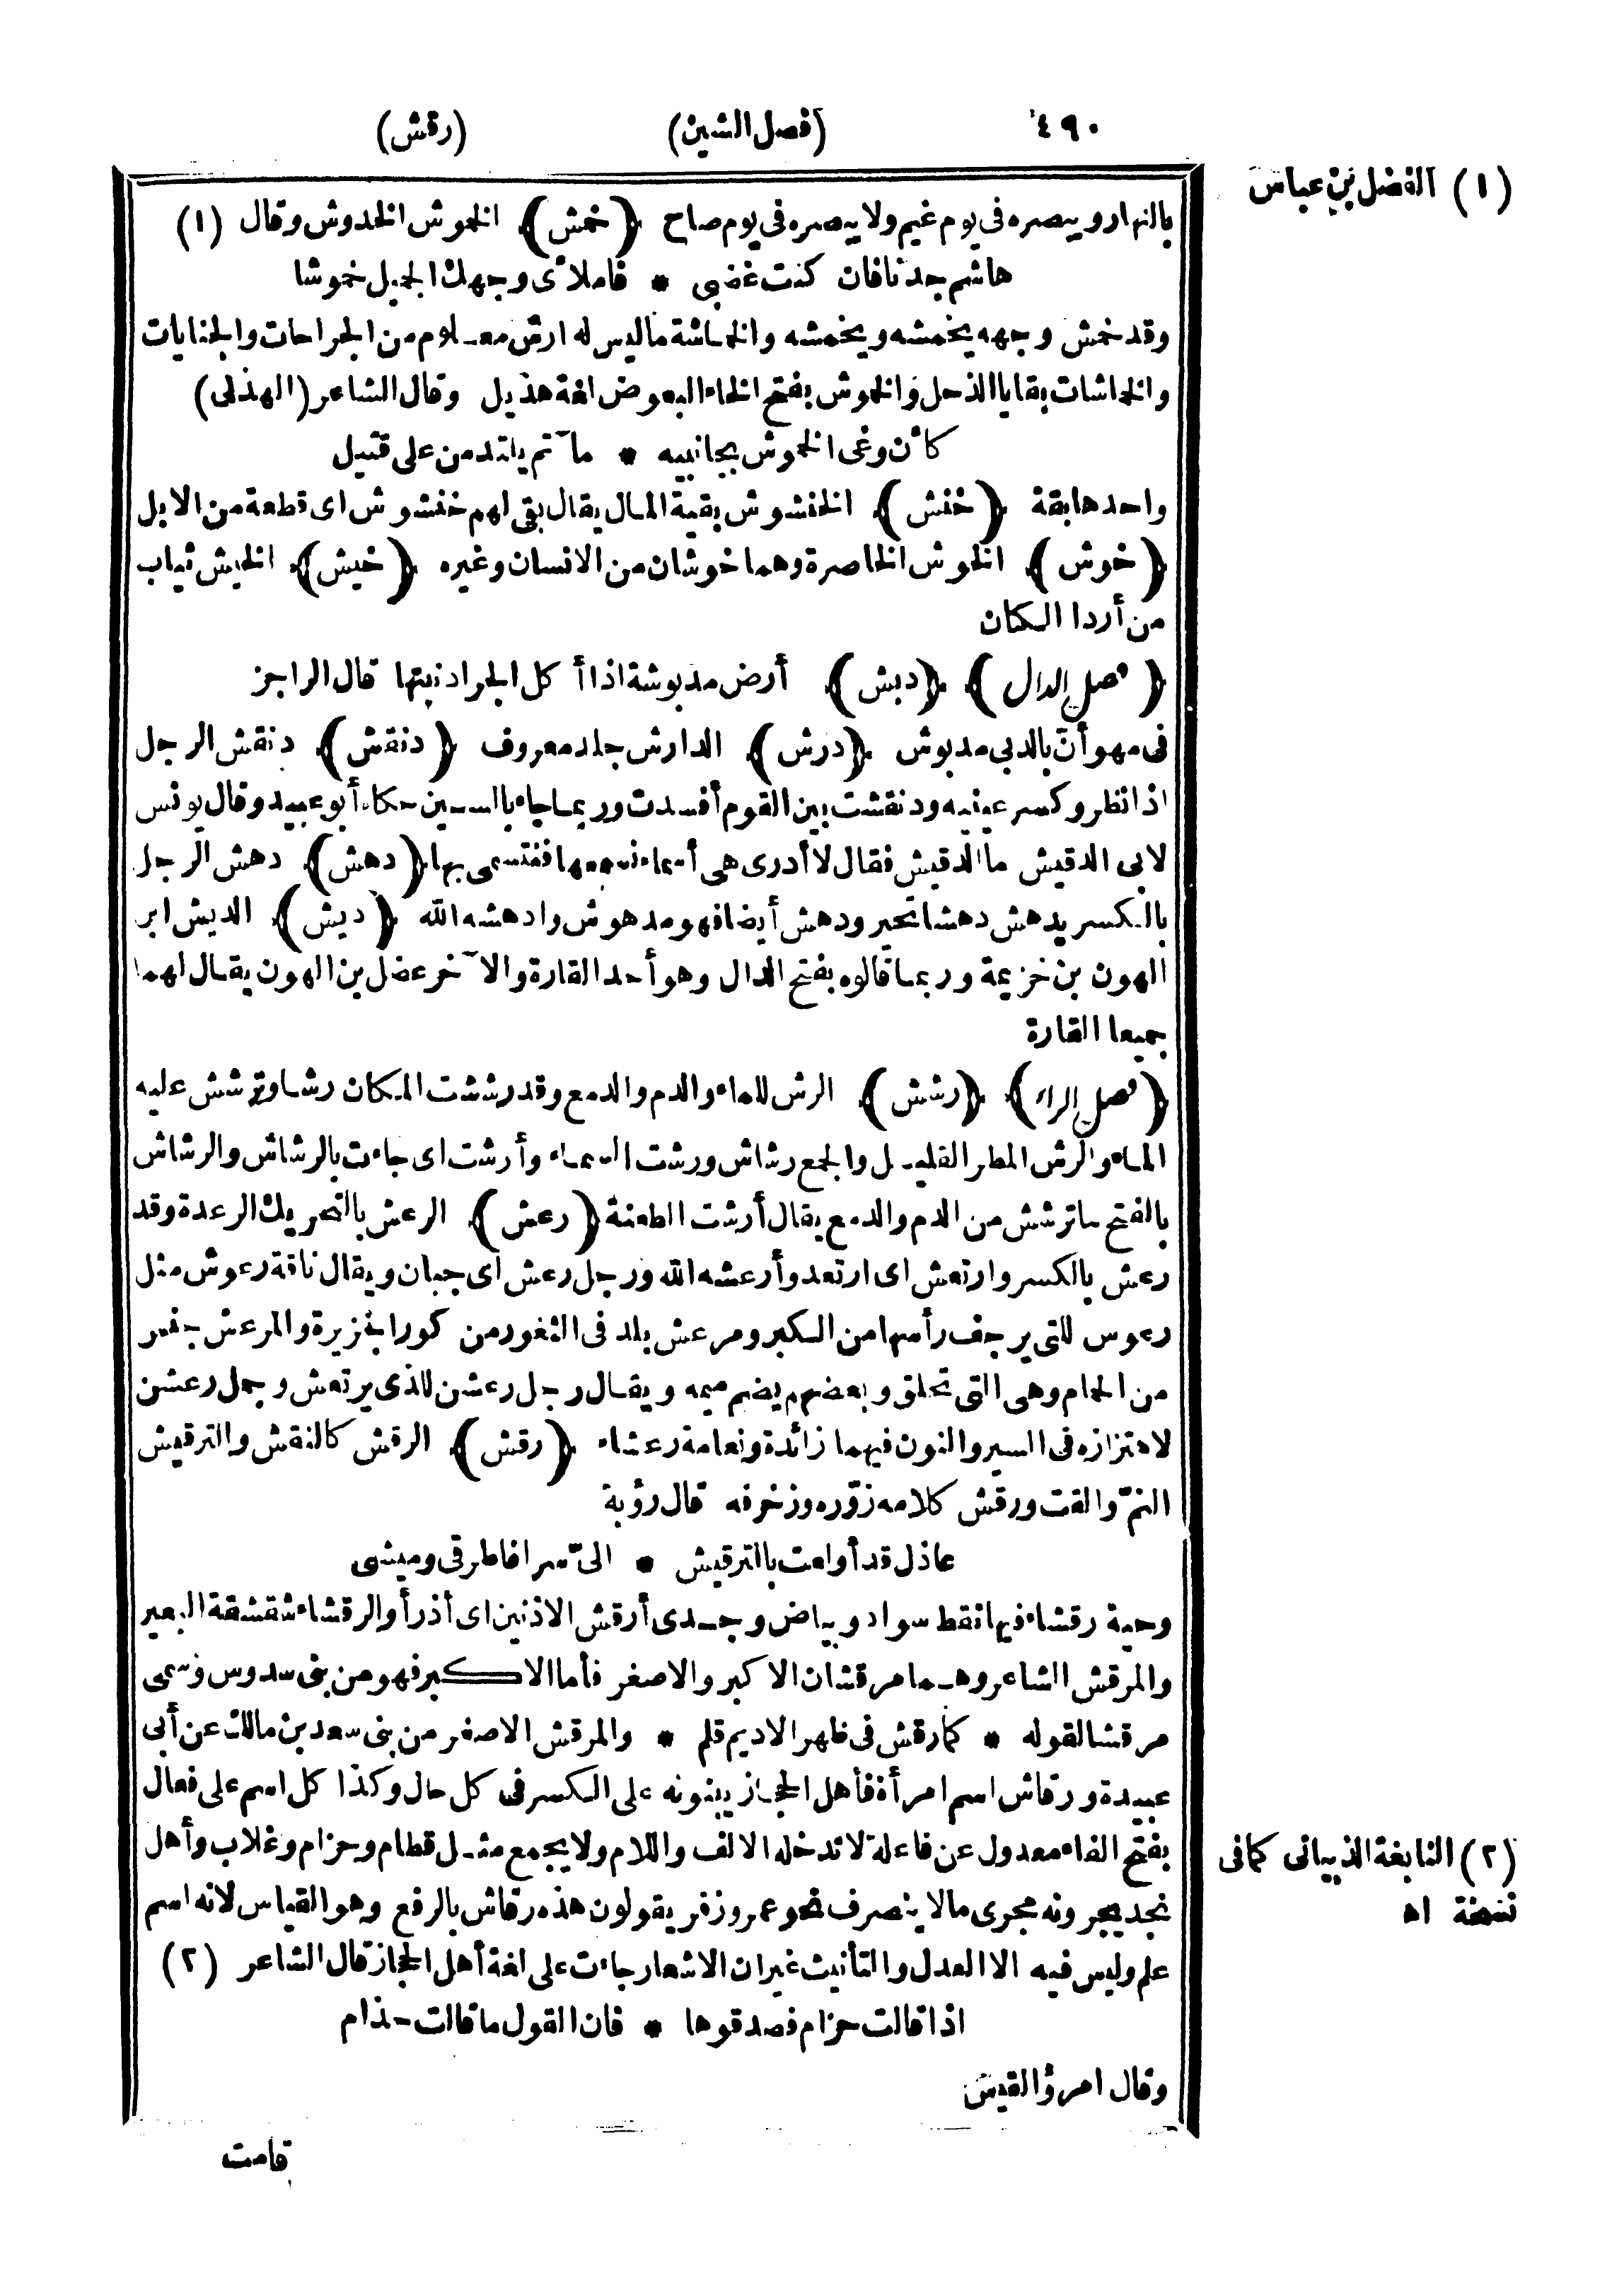 ٤٩٠ (فصل الشين) (رقش)
(١) الفضل بن عباس
بالنهار ويبصره فى يوم غيم ولا يبصره فى يوم صاح ﴿خمش﴾ الخموش الخدوش وقال (١)
هاشم جدنا فان كنت غضبى * فاملأى وجهك الجميل خموشا
وقد خمش وجهه يخمشه ويخمشه والخماشة ما ليس له ارش معلوم من الجراحات والجنايات
والخماشات بقايا الذحل والخموش بفتح الخاء البعوض لغة هذيل وقال الشاعر (الهذلى)
كأن وغى الخموش بجانبيه * مآتم يلتدمن على قتيل
واحدها بقة ﴿خنش﴾ الخنشوش بقية المال يقال بقى لهم خنشوش اى قطعة من الابل
﴿خوش﴾ الخوش الخاصرة وهما خوشان من الانسان وغيره ﴿خيش﴾ الخيش ثياب
من أردا الكتان
﴿فصل الدال﴾ ﴿دبش﴾ أرض مدبوشة اذا أكل الجراد نبتها قال الراجز
فى مهوأن بالدبى مدبوش ﴿درش﴾ الدارش جلد معروف ﴿دنقش﴾ دنقش الرجل
اذا نظر وكسر عينيه ودنقشت بين القوم أفسدت وربما جاء بالسين حكاه أبو عبيد وقال يونس
لابى الدقيش ما الدقيش فقال لا أدرى هى أسماء نسمعها فنتسمى بها ﴿دهش﴾ دهش الرجل
بالكسر يدهش دهشا تحير ودهش أيضا فهو مدهوش وادهشه الله ﴿ديش﴾ الديش ابن
الهون بن خزيمة وربما قالوه بفتح الدال وهو أحد القارة والآخر عضل بن الهون يقال لهما
جميعا القارة
﴿فصل الراء﴾ ﴿رشش﴾ الرش للماء والدم والدمع وقد رششت المكان رشا وترشش عليه
الماء والرش المطر القليل والجمع رشاش ورشت السماء وأرشت اى جاءت بالرشاش والرشاش
بالفتح ما ترشش من الدم والدمع يقال أرشت الطعنة ﴿رعش﴾ الرعش بالتحريك الرعدة وقد
رعش بالكسر وارتعش اى ارتعد وأرعشه الله ورجل رعش اى جبان ويقال ناقة رعوش مثل
رعوس للتى يرجف رأسها من الكبر ومرعش بلد فى الثغور من كور الجزيرة والمرعش جنس
من الحمام وهى التى تحلق وبعضهم يضم ميمه ويقال رجل رعشن للذى يرتعش وجمل رعشن
لاهتزازه فى السير والنون فيهما زائدة ونعامة رعشاء ﴿رقش﴾ الرقش كالنقش والترقيش
النمّ والقت ورقش كلامه زوّره وزخرفه قال رؤبة
عاذل قد أولعت بالترقيش * الىّ سرا فاطرقى وميشى
وحية رقشاء فيها نقط سواد وبياض وجدى أرقش الاذنين اى أذرأ والرقشاء شقشقة البعير
والمرقش الشاعر وهما مرقشان الاكبر والاصغر فأما الاكبر فهو من بنى سدوس وسمى
مرقشا لقوله * كما رقش فى ظهر الاديم قلم * والمرقش الاصغر من بنى سعد بن مالك عن أبى
عبيدة ورقاش اسم امرأة فأهل الحجاز يبنونه على الكسر فى كل حال وكذا كل اسم على فعال
بفتح الفاء معدول عن فاعلة لا تدخله الالف واللام ولا يجمع مثل قطام وحزام وغلاب وأهل
(٢) النابغة الذبيانى كما فى
نسخة اه
نجد يجرونه مجرى ما لا ينصرف نحو عمر وزفر يقولون هذه رقاش بالرفع وهو القياس لانه اسم
علم وليس فيه الا العدل والتأنيث غير ان الاشعار جاءت على لغة أهل الحجاز قال الشاعر (٢)
اذا قالت حزام فصدقوها * فان القول ما قالت حذام
وقال امرؤ القيس
قامت